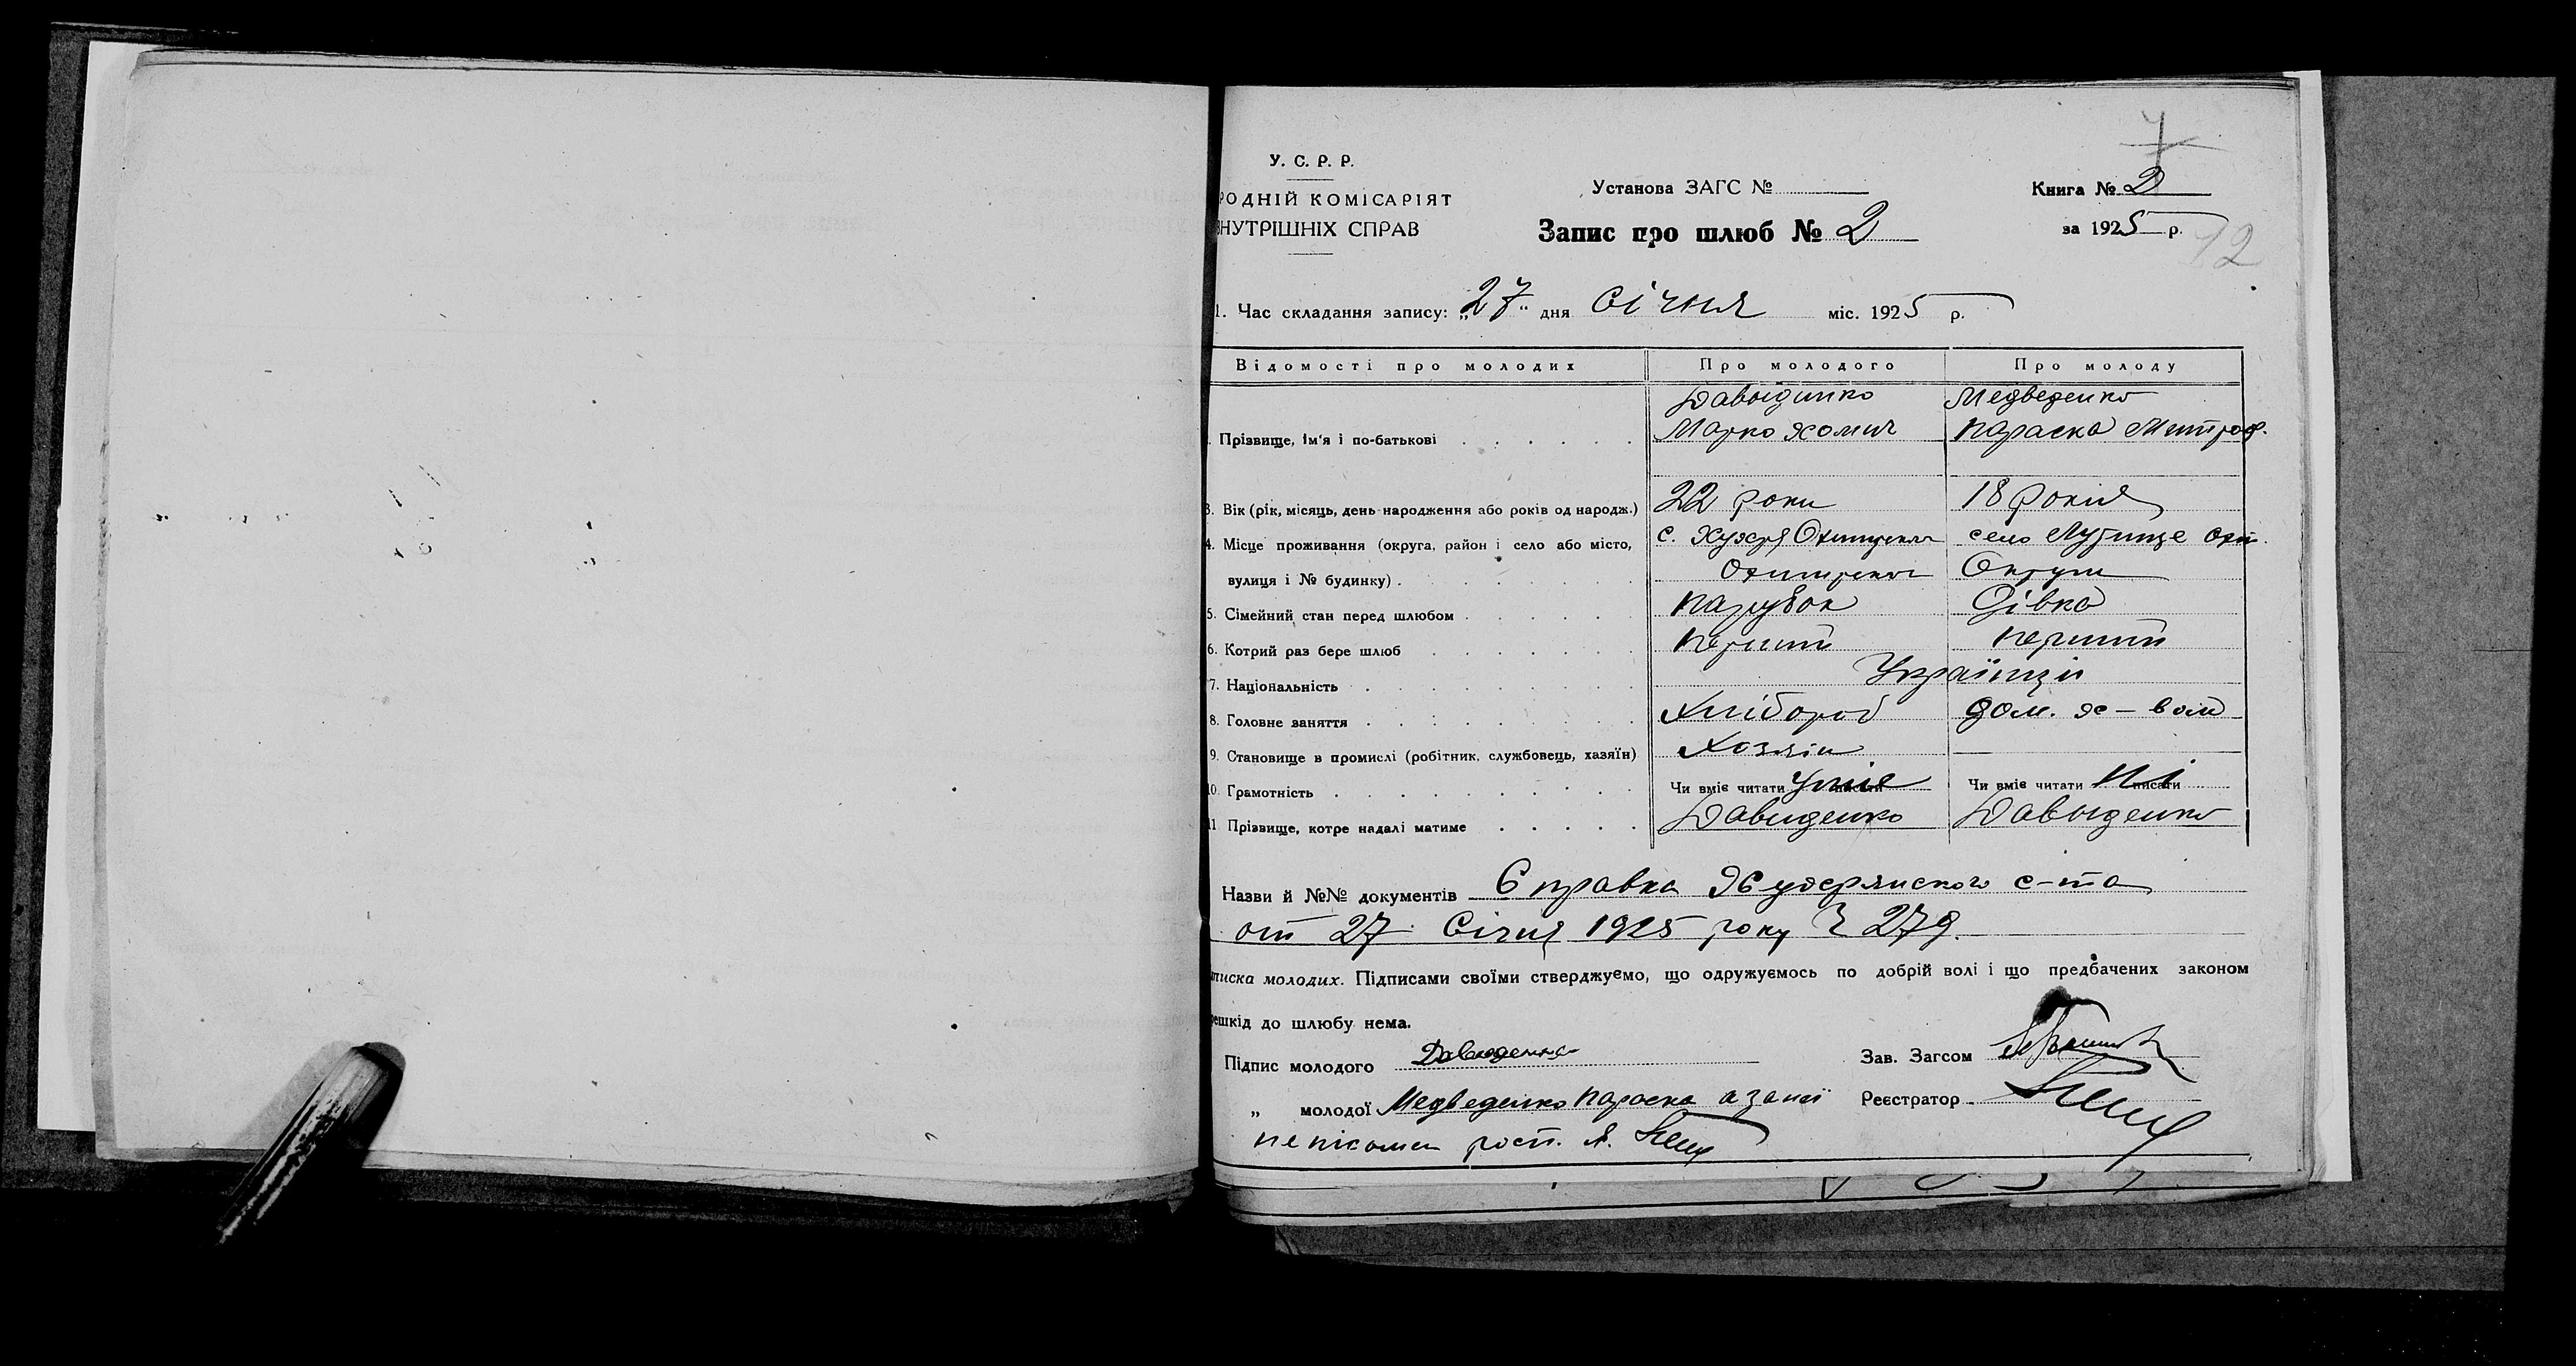 У. С. Р. Р.
РОДНІЙ КОМІСАРІЯТ
ВНУТРІШНІХ СПРАВ
Установа ЗАГС №
Запис про шлюб № 2
7
Книга № 2
за 1925 р.
12
1. Час складання запису: „27“ дня Січня міс. 1925 р.
Відомості про молодих Про молодого Про молоду
Давидинко Медведенко
Прізвище, ім'я і по-батькові Марко Хомич Параска Митроф.
3. Вік (рік, місяць, день народження або років од народж.) 22 роки 18 років
4. Місце проживання (округа, район і село або місто, с. Хухря Охтирського село Лутище Охт.
вулиця і № будинку) Охтирської Округи
5. Сімейний стан перед шлюбом Парубок Дівка
6. Котрий раз бере шлюб Перший перший
7. Національність Українці
8. Головне заняття Хлібороб дом. х-вом
9. Становище в промислі (робітник, службовець, хазяїн) Хозяїн —
10. Грамотність Чи вміє читати уміє писати Чи вміє читати Ні писати
11. Прізвище, котре надалі матиме Давиденко Давыденко
Назви й №№ документів Справка Хухрянського с-та
от 27 Січня 1925 року Ч 279.
писка молодих. Підписами своїми стверджуємо, що одружуємось по добрій волі і що предбачених законом
решкід до шлюбу нема.
Підпис молодого Давиденко Зав. Загсом
„ молодої Медведенко Параска а за неї Реєстратор
неписьмен росп. А.